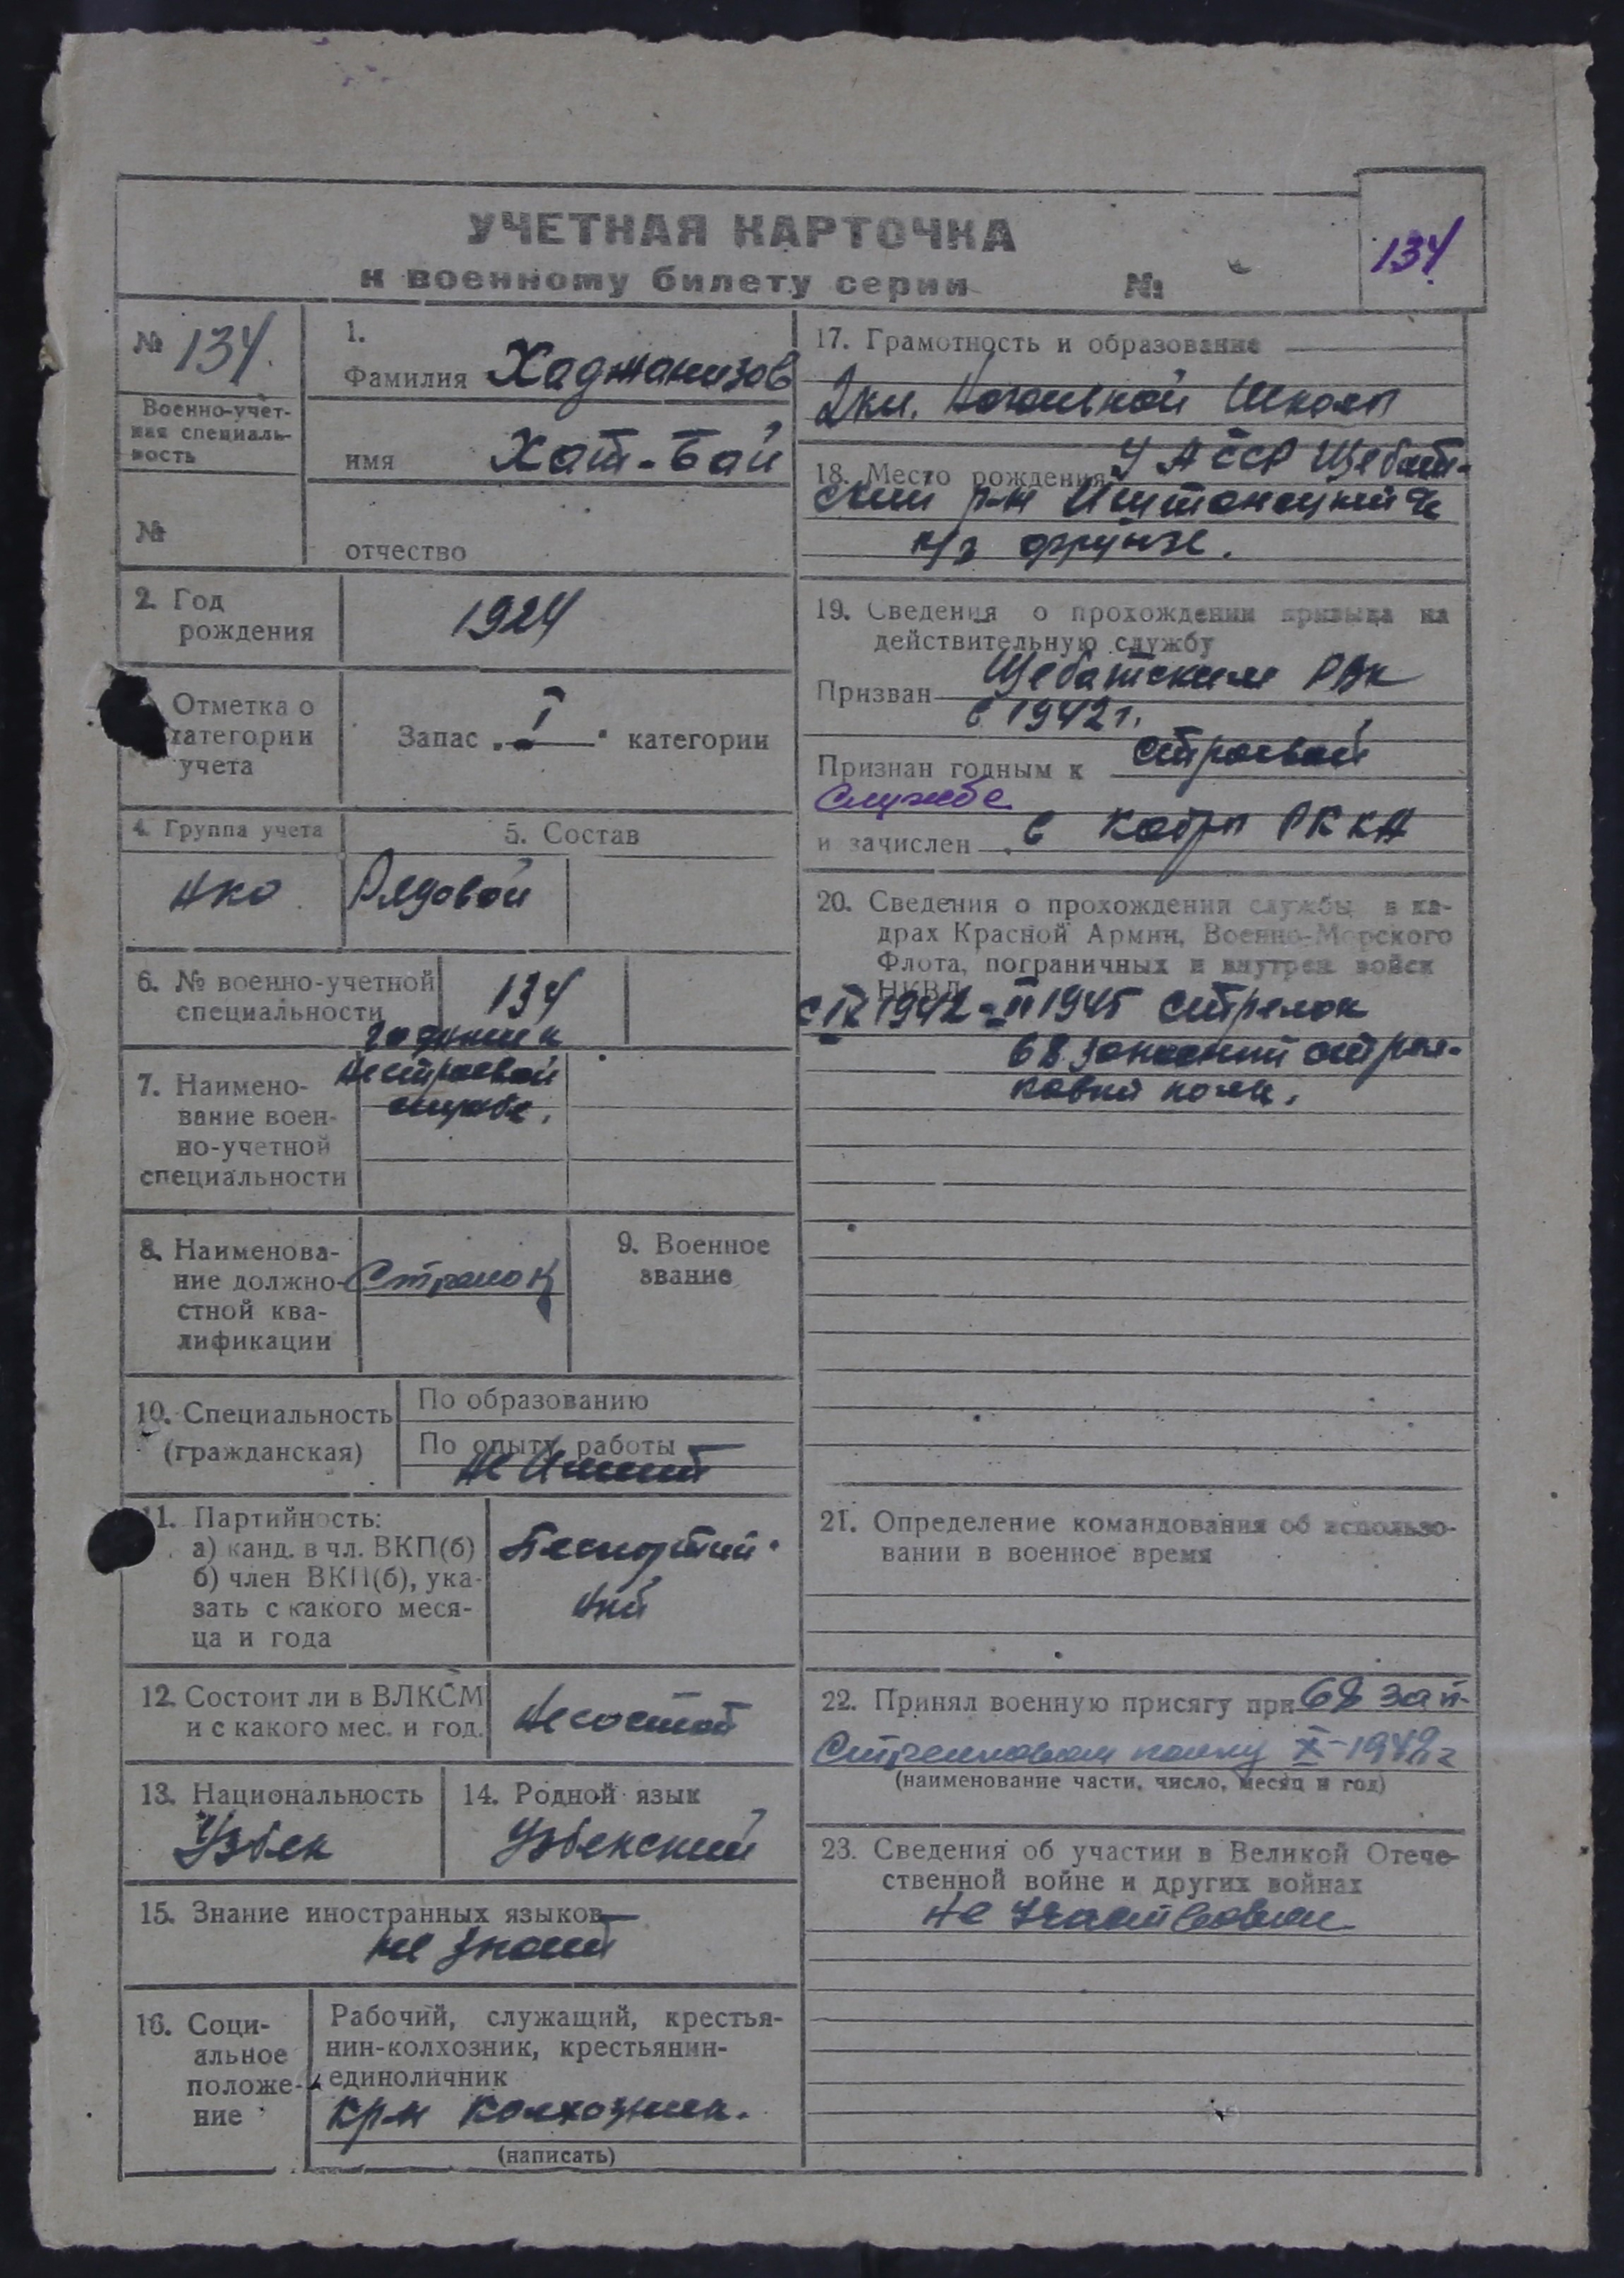 УЧЕТНАЯ КАРТОЧКА
к военному билету серии №
134
№ 134.
Военно-учет-
ная специаль-
ность
№
1.
Фамилия Хаджанизов
имя Хат-Бай
отчество
2. Год
рождения
1924
Отметка о
категории
учета
Запас „I“ категории
4. Группа учета
5. Состав
НКО
Рядовой
6. № военно-учетной
специальности
134
7. Наимено-
вание воен-
но-учетной
специальности
годный к
нестроевой
службе.
8. Наименова-
ние должно-
стной ква-
лификации
Стрелок
9. Военное
звание
10. Специальность
(гражданская)
По образованию
По опыту работы
не имеет
11. Партийность:
а) канд. в чл. ВКП(б)
б) член ВКП(б), ука-
зать с какого меся-
ца и года
Беспартий-
ный
12. Состоит ли в ВЛКСМ
и с какого мес. и год.
не состоит
13. Национальность
Узбек
14. Родной язык
Узбекский
15. Знание иностранных языков
не знает
16. Соци-
альное
положе-
ние
Рабочий, служащий, крестья-
нин-колхозник, крестьянин-
единоличник
кр-н колхозник.
(написать)
17. Грамотность и образование
2 кл. начальной школы
18. Место рождения
ский р-н
к/з Фрунзе.
19. Сведения о прохождении призыва на
действительную службу
Призван РВК
в 1942 г.
Признан годным к строевой
службе
и зачислен в кадры РККА
20. Сведения о прохождении службы в ка-
драх Красной Армии, Военно-Морского
Флота, пограничных и внутрен. войск
НКВД
с IX 1942 - II 1945 стрелок
68 запасный стрел-
ковый полк.
21. Определение командования об использо-
вании в военное время
22. Принял военную присягу при 68 зап.
стрелковом полку X-1942 г
(наименование части, число, месяц и год)
23. Сведения об участии в Великой Отече-
ственной войне и других войнах
не участвовал